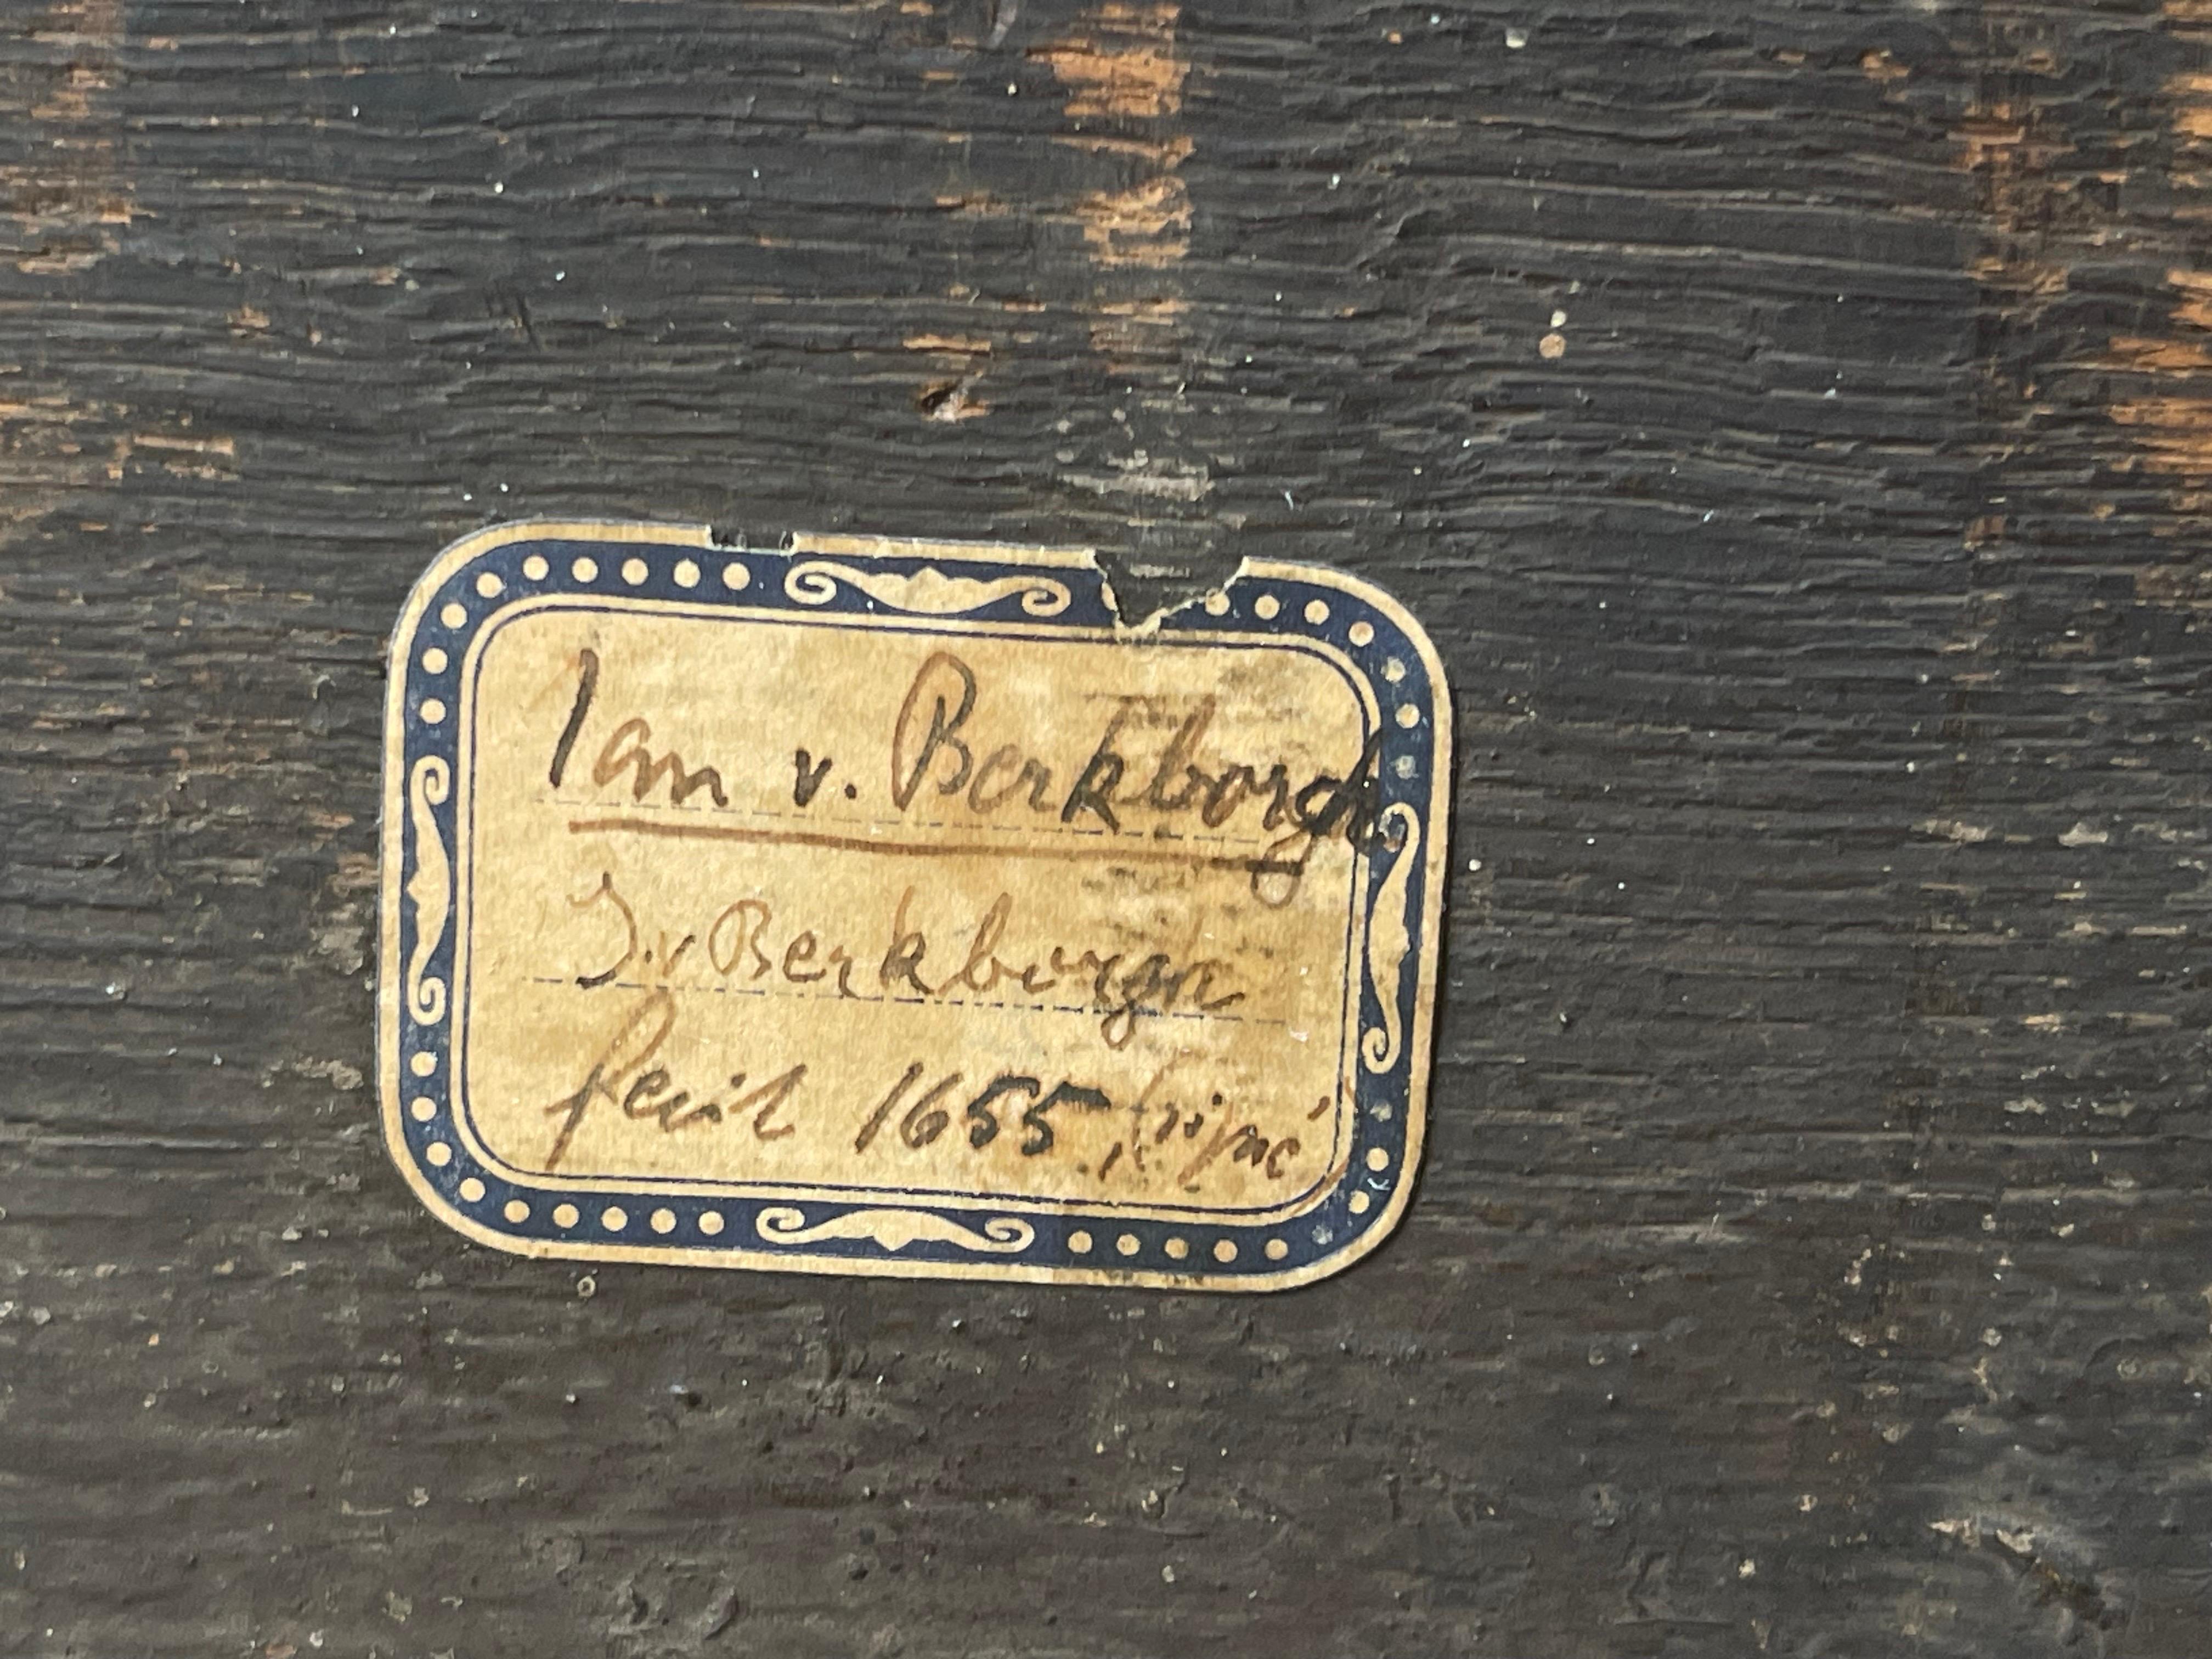 Ian v. Berkborgh
J. v Berkborgh
fecit 1655. (signé)